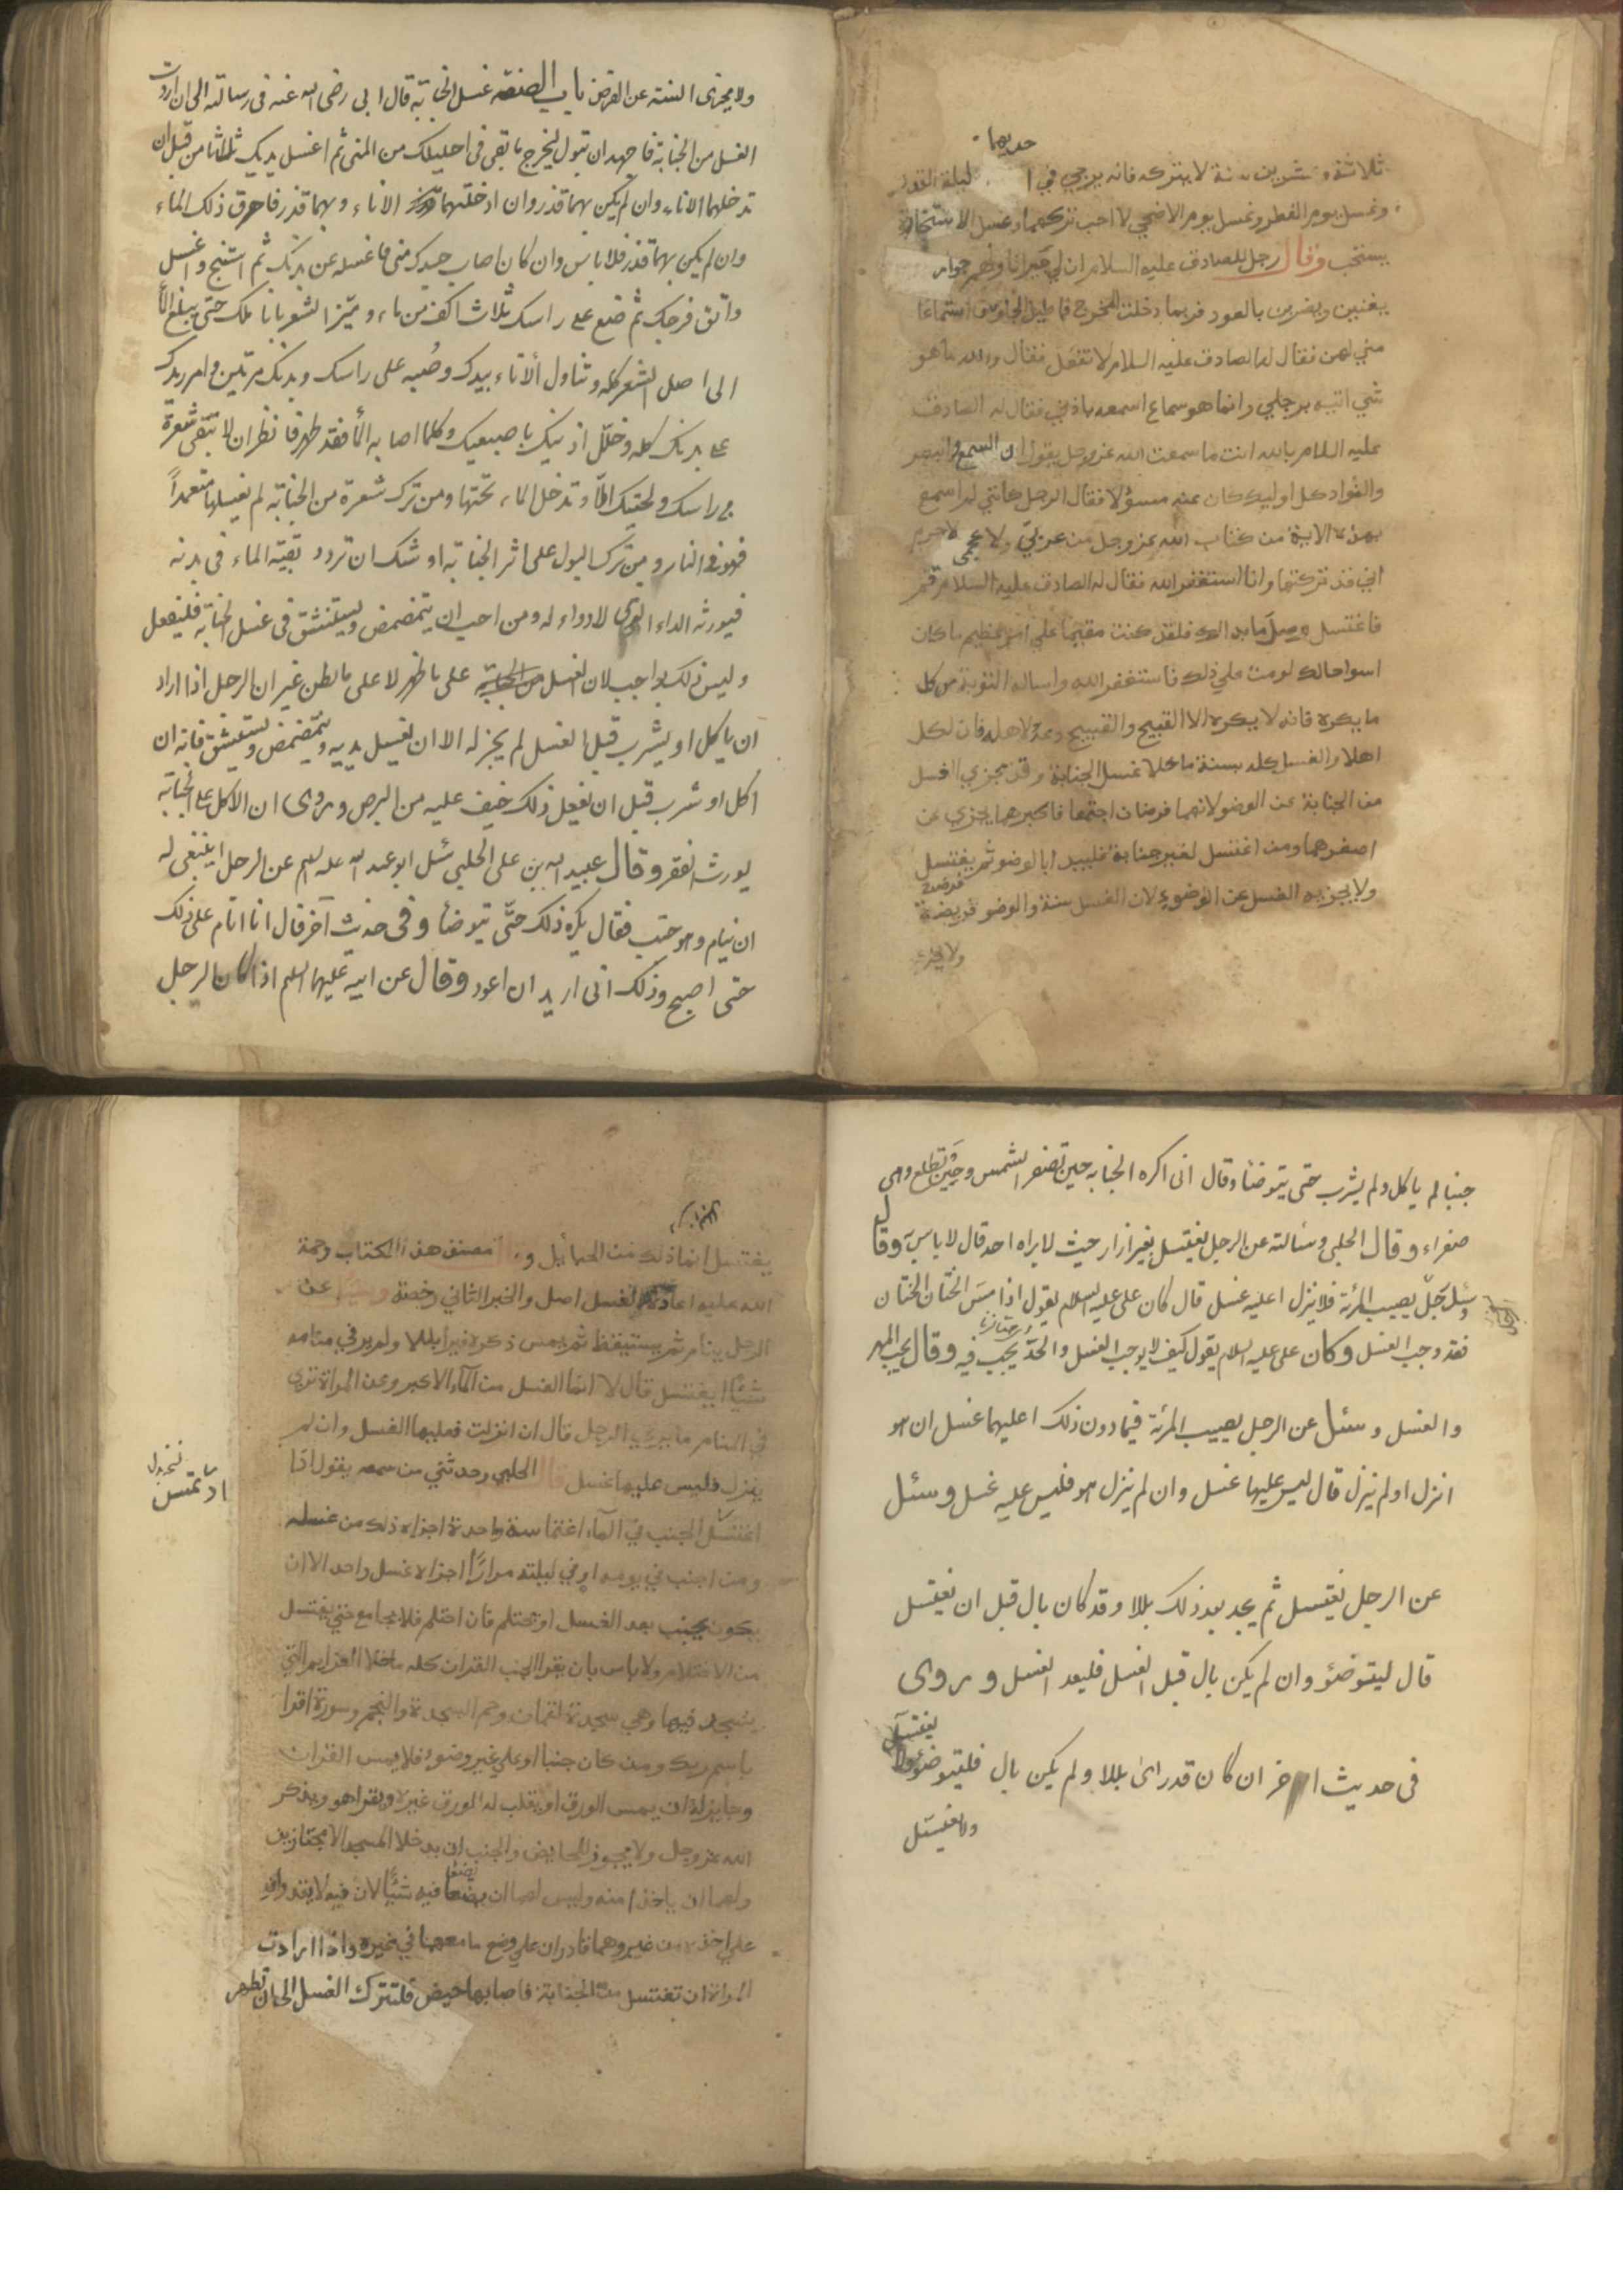 حديها
ثلاثة وعشرين سنة لا يتركه فانه يرجي في ليلة القدر
وغسل يوم الفطر وغسل يوم الاضحي لا احب تركهما وغسل الاستخارة
يستحب وقال رجل للصادق عليه السلام ان لي جيرانا ولهم جوار
يغنين ويضربن بالعود فربما دخلت المخرج فاطيل الجلوس استماعا
مني لهن فقال له الصادق عليه السلام لا تفعل فقال والله ما هو
شي اتيه برجلي وانما هو سماع اسمعه باذني فقال له الصادق
عليه السلام بالله انت ما سمعت الله عز وجل يقول ان السمع والبصر
والفواد كل اوليك كان عنه مسؤلا فقال الرجل كانني لم اسمع
بهذه الاية من كتاب الله عز وجل من عربي ولا عجمي لاجرم
اني قد تركتها وانا استغفر الله فقال له الصادق عليه السلام قم
فاغتسل وصل ما بدا لك فلقد كنت مقيما علي امر عظيم ما كان
اسوا حالك لو مت علي ذلك فاستغفر الله واساله التوبة من كل
ما يكره فانه لا يكره الا القبيح والقبيح دعه لاهله فان لكل
اهلا والغسل كله سنة ما خلا غسل الجنابة وقد يجزي الغسل
من الجنابة عن الوضو لانهما فرضان اجتمعا فاكبرهما يجزي عن
اصغرهما ومن اغتسل لغير جنابة فليبدا بالوضو ثم يغتسل
ولا يجزيه الغسل عن الوضوء لان الغسل سنة والوضو فريضة
ولا يجزى
ولا يجزى السنة عن الفرض باب الصنفه غسل الجنابة قال ابى رضى الله عنه فى رسالته الى ان اردت
الغسل من الجنابة فاجهد ان تبول ليخرج ما بقى فى احليلك من المنى ثم اغسل يديك ثلاثا من قبل ان
تدخلهما الاناء وان لم يكن بهما قذر وان ادخلتهما الاناء وبهما قذر فاهرق ذلك الماء
وان لم يكن بهما قذر فلا باس وان كان اصاب جسدك منى فاغسله عن بدنك ثم استنج واغسل
وانق فرجك ثم ضع على راسك ثلاث اكف من ماء وميز الشعر باناملك حتى يبلغ الماء
الى اصل الشعر كله وتناول الاناء بيدك وصبه على راسك وبدنك مرتين وامرر يدك
على بدنك كله وخلل اذنيك باصبعيك وكلما اصابه الماء فقد طهر فانظر ان لا تبقى شعرة
من راسك ولحيتك الا وتدخل الماء تحتها ومن ترك شعرة من الجنابة لم يغسلها متعمدا
فهو فى النار ومن ترك البول على اثر الجنابة او شك ان تردد بقية الماء فى بدنه
فيورثه الداء الذى لا دواء له ومن احب ان يتمضمض ويستنشق فى غسل الجنابة فليفعل
وليس ذلك بواجب لان الغسل من الجنابة على ما ظهر لا على ما بطن غير ان الرجل اذا اراد
ان ياكل او يشرب قبل الغسل لم يجز له الا ان يغسل يديه ويتمضمض ويستنشق فانه ان
اكل او شرب قبل ان يفعل ذلك خيف عليه من البرص وروى ان الاكل على الجنابة
يورث الفقر وقال عبيد الله بن على الحلبى سئل ابو عبد الله عليه السلم عن الرجل اينبغى له
ان ينام وهو جنب فقال يكره ذلك حتى يتوضا وفى حديث آخر قال انا انام على ذلك
حتى اصبح وذلك انى اريد ان اعود وقال عن ابيه عليهما السلم اذا كان الرجل
جنبا لم ياكل ولم يشرب حتى يتوضا وقال انى اكره الجنابه حين تصفر الشمس وحين تطلع وهى
صفراء وقال الحلبى وسالته عن الرجل يغتسل بغير ازار حيث لا يراه احد قال لا باس وقال
وسئل رجل يصيب المرئة فلا ينزل اعليه غسل قال كان على عليه السلام يقول اذا مس الختان الختان
فقد وجب الغسل وكان على عليه السلام يقول كيف لا يوجب الغسل والحد يجب فيه وقال يجب المهر
والغسل وسئل عن الرجل يصيب المرئة فيما دون ذلك اعليها غسل ان هو
انزل او لم ينزل قال ليس عليها غسل وان لم ينزل هو فليس عليه غسل وسئل
عن الرجل يغتسل ثم يجد بعد ذلك بللا وقد كان بال قبل ان يغتسل
قال ليتوضئو وان لم يكن بال قبل الغسل فليعد الغسل وروى
فى حديث اخر ان كان قد راى بللا ولم يكن بال فليتوضئو ولا يغتسل
ولا يغتسل
يغتسل انما ذلك من الحبائل و مصنف هذا الكتاب رحمة
الله عليه اعادة الغسل اصل والخبر الثاني رخصة وسئل عن
الرجل ينام ثم يستيقظ ثم يمس ذكره فيرا بللا ولم ير في منامه
شيئا ايغتسل قال لا انما الغسل من الماء الاكبر وعن المراة تري
في المنام ما يري الرجل قال ان انزلت فعليها الغسل وان لم
ينزل فليس عليها غسل قال الحلبي وحدثني من سمعه يقول اذا
اغتسل الجنب في الماء اغتماسة واحدة اجزاه ذلك من غسله
نخ بدل
ارتمس
ومن اجنب في يومه او في ليلته مرارا اجزاه غسل واحد الا ان
يكون يجنب بعد الغسل او يحتلم فان احتلم فلا يجامع حتي يغتسل
من الاحتلام ولا باس بان يقرا الجنب القران كله ما خلا العزايم التي
يسجد فيها وهي سجدة لقمان وحم السجدة والنجم وسورة اقرا
باسم ربك ومن كان جنبا او علي غير وضوء فلا يمس القران
وجايز له ان يمس الورق او يقلب له الورق غيره ويقرا هو ويذكر
الله عز وجل ولا يجوز للحايض والجنب ان يدخلا المسجد الا مجتازين
ولهما ان ياخذا منه وليس لهما ان يضعا فيه شيئا لان فيه لا يقدران
علي اخذه من غيره وهما قادران علي وضع ما معهما في غيره واذا ارادت
المراة ان تغتسل من الجنابة فاصابها حيض فلتترك الغسل الى ان تطهر